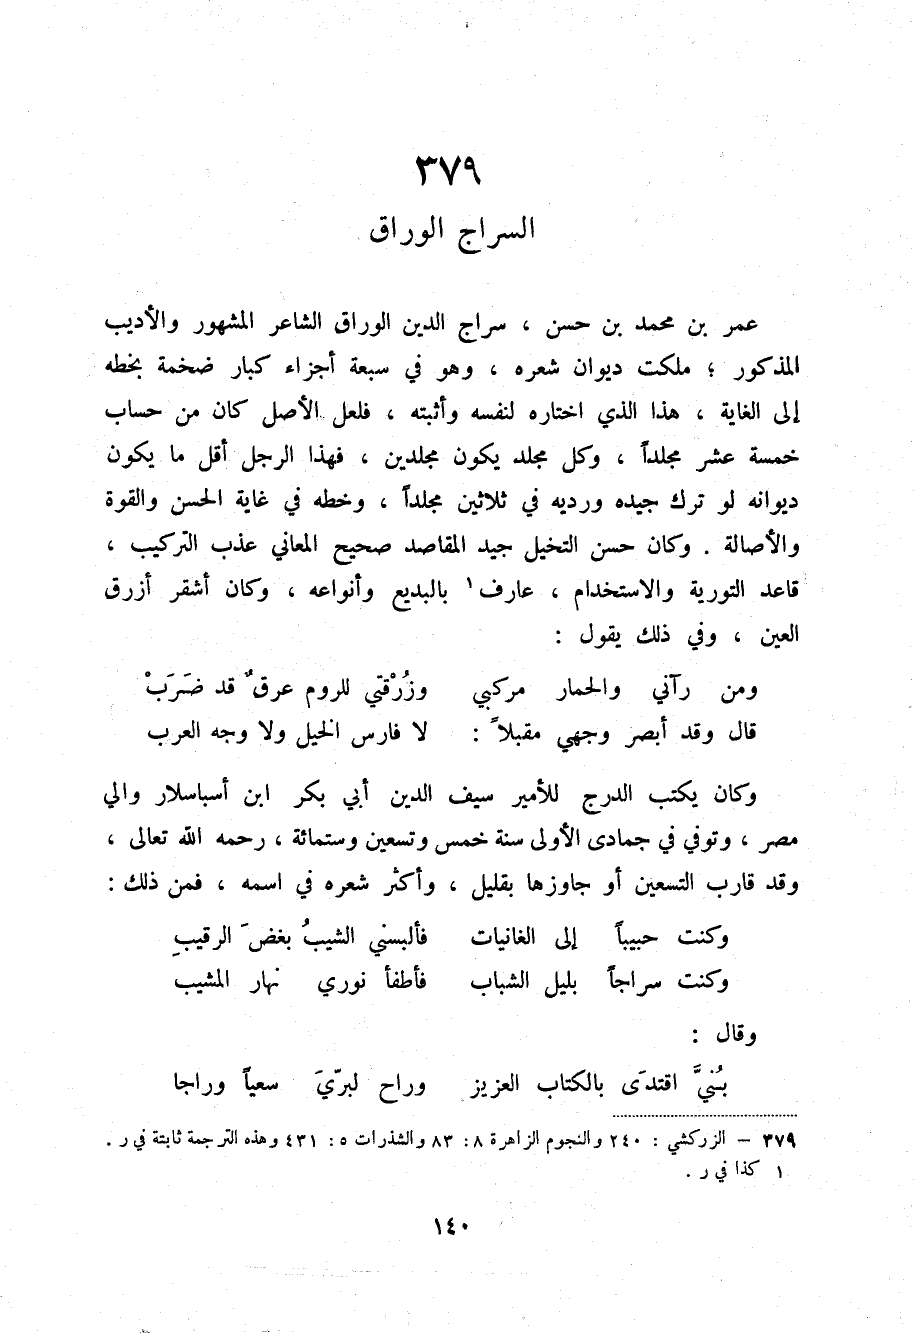 ٣٧٩
السراج الوراق
عمر بن محمد بن حسن ، سراج الدين الوراق الشاعر المشهور والأديب
المذكور ؛ ملكت ديوان شعره ، وهو في سبعة أجزاء كبار ضخمة بخطه
إلى الغاية ، هذا الذي اختاره لنفسه وأثبته ، فلعل الأصل كان من حساب
خمسة عشر مجلداً ، وكل مجلد يكون مجلدين ، فهذا الرجل أقل ما يكون
ديوانه لو ترك جيده ورديه في ثلاثين مجلداً ، وخطه في غاية الحسن والقوة
والأصالة . وكان حسن التخيل جيد المقاصد صحيح المعاني عذب التركيب ،
قاعد التورية والاستخدام ، عارف ١ بالبديع وأنواعه ، وكان أشقر أزرق
العين ، وفي ذلك يقول :
ومن رآني والحمار مركبي وزُرْقتي للروم عرقٌ قد ضَرَبْ
قال وقد أبصر وجهي مقبلاً : لا فارس الخيل ولا وجه العرب
وكان يكتب الدرج للأمير سيف الدين أبي بكر ابن أسباسلار والي
مصر ، وتوفي في جمادى الأولى سنة خمس وتسعين وستمائة ، رحمه الله تعالى ،
وقد قارب التسعين أو جاوزها بقليل ، وأكثر شعره في اسمه ، فمن ذلك :
وكنت حبيباً إلى الغانيات فألبسني الشيبُ بغضَ الرقيبِ
وكنت سراجاً بليل الشباب فأطفأ نوري نهار المشيب
وقال :
بُنيَّ اقتدَى بالكتاب العزيز وراح لبرّيَ سعياً وراجا
٣٧٩ – الزركشي : ٢٤٠ والنجوم الزاهرة ٨ : ٨٣ والشذرات ٥ : ٤٣١ وهذه الترجمة ثابتة في ر .
١ كذا في ر .
١٤٠